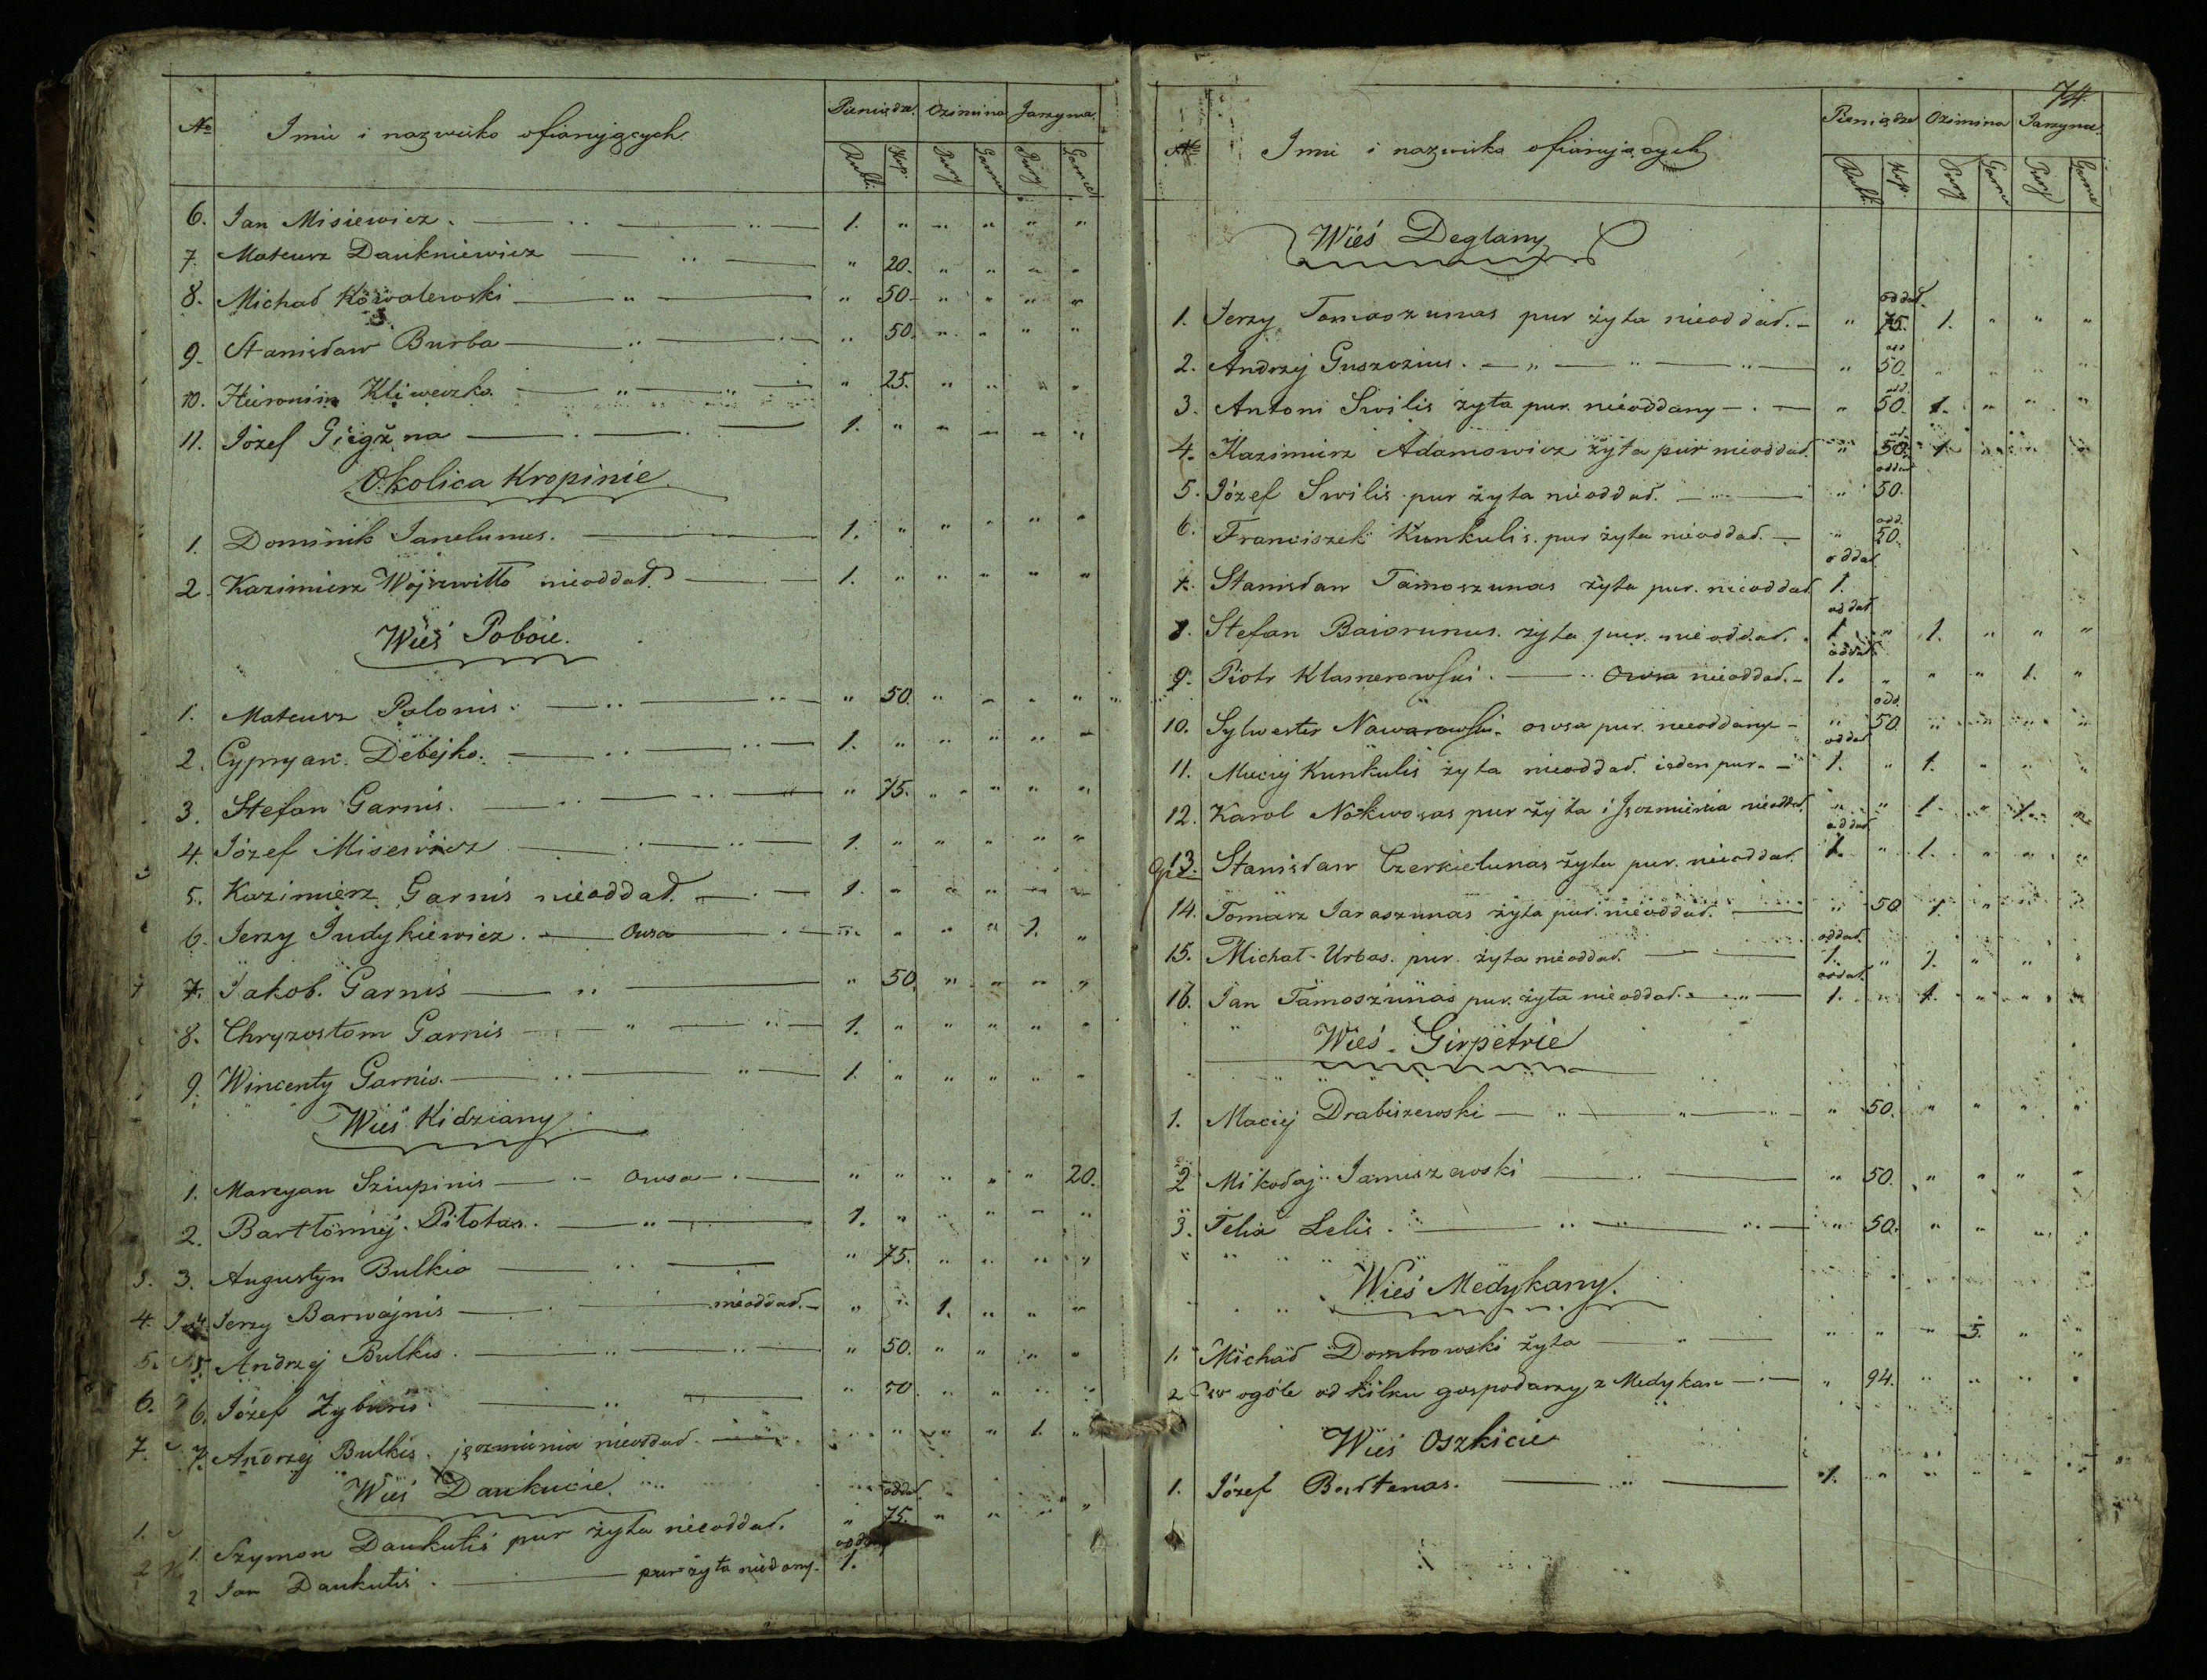 № Imie i nazwisko ofiarujących Pieniądze. Ozimina Jarzyna.
Rubl. Kop. Pury Garnce Pury Garnce
6. Jan Misiewicz. 1. " " " " "
7. Mateusz Daukniewicz " 20. " " " "
8. Michał Kowalewski " 50 " " " "
9. Stanisław Burba " 50. " " " "
10. Hieronim Klimeczko. " 25. " " " "
11. Józef Giegżna 1. " " " " "
Okolica Kropinie
1. Dominik Janelunus. 1. " " " " "
2. Kazimierz Wojszwiłło nieoddał. 1. " " " " "
Wieś Poboie.
1. Mateusz Polonis. " 50. " " " "
2. Cypryan Debejko. 1. " " " " "
3. Stefan Garnis. " 75. " " " "
4. Józef Misiewicz 1. " " " " "
5. Kazimierz Garnis nieoddał. 1. " " " " "
6. Jerzy Judykiewicz. Owsa " " " " 1. "
7. Jakob. Garnis " 50. " " " "
8. Chryzostom Garnis 1. " " " " "
9. Wincenty Garnis. 1. " " " " "
Wieś Kidziany
1. Marcyan Sziupinis Owsa " " " " " 20.
2. Bartłomiej Piłotas. 1. " " " " "
3. 3. Augustyn Bulkio " 75. " " " "
4. 4. Jerzy Barwajnis nieoddał. " " 1. " " "
5. 5. Andrzej Bulkis. " 50. " " " "
6. 6. Józef Zyburis. " 50 " " " "
7. 7. Andrzej Bulkis. jęczmienia nieoddał. " " " " 1. "
Wieś Daukucie
oddał.
1. 1. Szymon Daukutis pur żyta nieoddał. " 75. " " " "
2 2 Jan Daukutis. pur żyta niedany. 1.
74
№ Imie i nazwiska ofiarujących Pieniądze Ozimina Jarzyna.
Rubl. Kop. Pury Garnce Pury Garnce
Wieś Deglany
oddał.
1. Jerzy Tomaszunas pur żyta nieoddał. " 75. 1. " " "
2. Andrzej Guszczius. " 50. " " " "
odd.
3. Antoni Swilis żyta pur. nieoddany " 50. 1. " " "
4. Kazimierz Adamowicz żyta pur nieoddał. " 50. 1. " " "
oddał
5. Józef Swilis pur żyta nieoddał. " 50.
odd.
6. Franciszek Kunkulis. pur żyta nieoddał. " 50.
oddał
7. Stanisław Tamoszunas żyta pur. nieoddał 1.
oddał
8. Stefan Baiorunus. żyta pur. nieoddał. 1 " 1. " " "
oddał.
9. Piotr Klamerowski. Owsa nieoddał. 1. " " " 1. "
odd.
10. Sylwester Nawarowski. owsa pur. nieoddany " 50. " " " "
oddał
11. Maciej Kunkulis żyta nieoddał. ieden pur. 1. " 1. " " "
12. Karol Nokwosas pur żyta i Jęczmienia nieoddał. " " 1. " 1. "
oddał
13. Stanisław Czerkielunas żyta pur. nieoddał. 1. " 1. " " "
14. Tomasz Jaraszunas żyta pur. nieoddał. " 50 1. " " "
oddał.
15. Michał Urbas. pur. żyta nieoddał. 1. " 1. " " "
oddał.
16. Jan Tamoszunas pur. żyta nieoddał. 1. " 1. " " "
Wieś Girpetrie
1. Maciej Drabiszewski " 50. " " " "
2 Mikołaj Januszewski " 50. " " " "
3. Felix Lelis. " 50. " " " "
Wieś Medykany.
1. Michał Dombrowski żyta " " " 5. " "
2 w ogóle od kilku gospodarzy z Medykan " 94. " " " "
Wieś Oszkicie
1. Józef Bartenas. 1. " " " " "